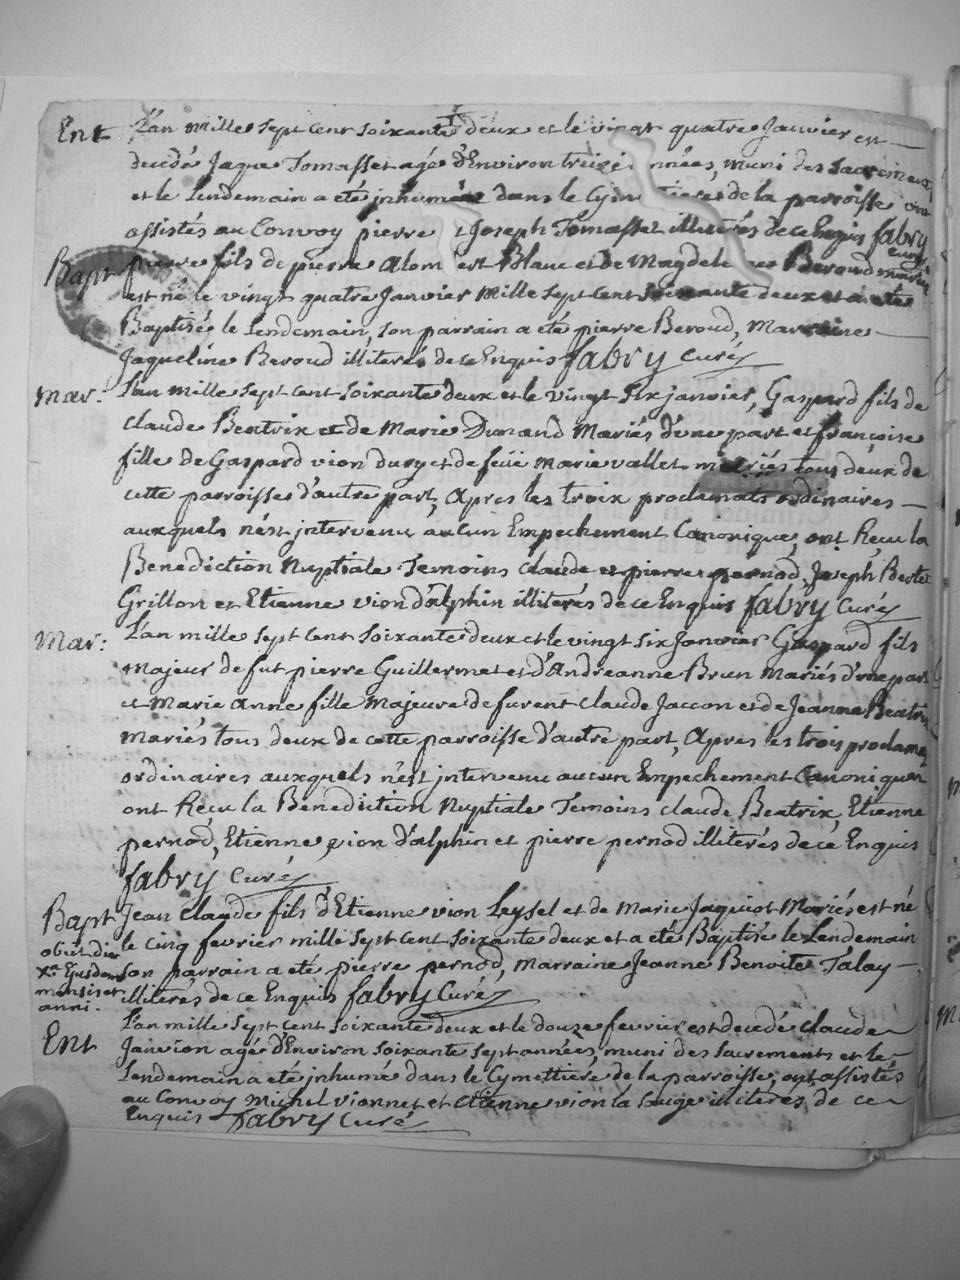 Ent L'an mille sept cent soixante deux et le vingt quatre Janvier en
decedé Jaque Tomasset agé d'Environ treize années, muni des Sacremens,
et le Lendemain a eté inhumé dans le Cymettiere de la parroisse ont
assistés au Convoy pierre et Joseph Tomasset illiterés de ce Enquis fabry
curé
Bapt pierre fils de pierre Alom est Blanc et de Magdeleine Beroud mariés
est né le vingt quatre Janvier Mille sept cent soixante deux et a eté
Baptisés le Lendemain, son parrain a eté pierre Beroud, Marraine
Jaqueline Beroud illiteres de ce Enquis fabry Curé
Mar: L'an mille sept cent soixante deux et le vingt six janvier, Gaspard fils de
Claude Beatrix et de Marie Dunand Mariés d'une part et françoise
fille de Gaspard vion dury et de feüe Marie vallet mariés tous deux de
cette parroisse d'autre part, Apres les troix proclamats ordinaires
auxquels n'est jntervenu aucun Empechement Canonique, ont Reçu la
Benediction Nuptiale Temoins Claude et pierre pernod, Joseph Bertet
Grillon et Etienne vion d'alphin illiterés de ce Enquis fabry Curé
Mar: L'an mille sept cent soixante deux et le vingt six Janvier Gaspard fils
Majeur de fut pierre Guillermet et d'Andreanne Brun Mariés d'une part
et Marie Anne fille Majeure de furent Claude Jaccon et de Jeanne Beatrix
mariés tous deux de cette parroisse d'autre part, Apres les trois proclamats
ordinaires auxquels n'est jntervenu aucun Empechement Canonique
ont Reçu la Benediction Nuptiale Temoins Claude Beatrix, Etienne
pernod, Etienne vion d'alphin et pierre pernod illiterés de ce Enquis
fabry Curé
Bapt Jean Claude fils d'Etienne vion Leysel et de Marie Jaquiot Mariés est né
le cinq fevrier mille sept cent soixante deux et a eté Baptisé le Lendemain
obiit die
Xa. Ejusdem son parrain a eté pierre pernod, Marraine Jeanne Benoite Talay
mensis et illiterés de ce Enquis fabry Curé
anni.
Ent L'an mille sept cent soixante deux et le douze fevrier est decedé Claude
Janvion agé d'Environ soixante sept années, muni des sacrements et le
Lendemain a eté jnhumé dans le Cymettiere de la parroisse, ont assistés
au Convoy Michel vionnet et Etienne vion la souge illiterés de ce
Enquis fabry Curé